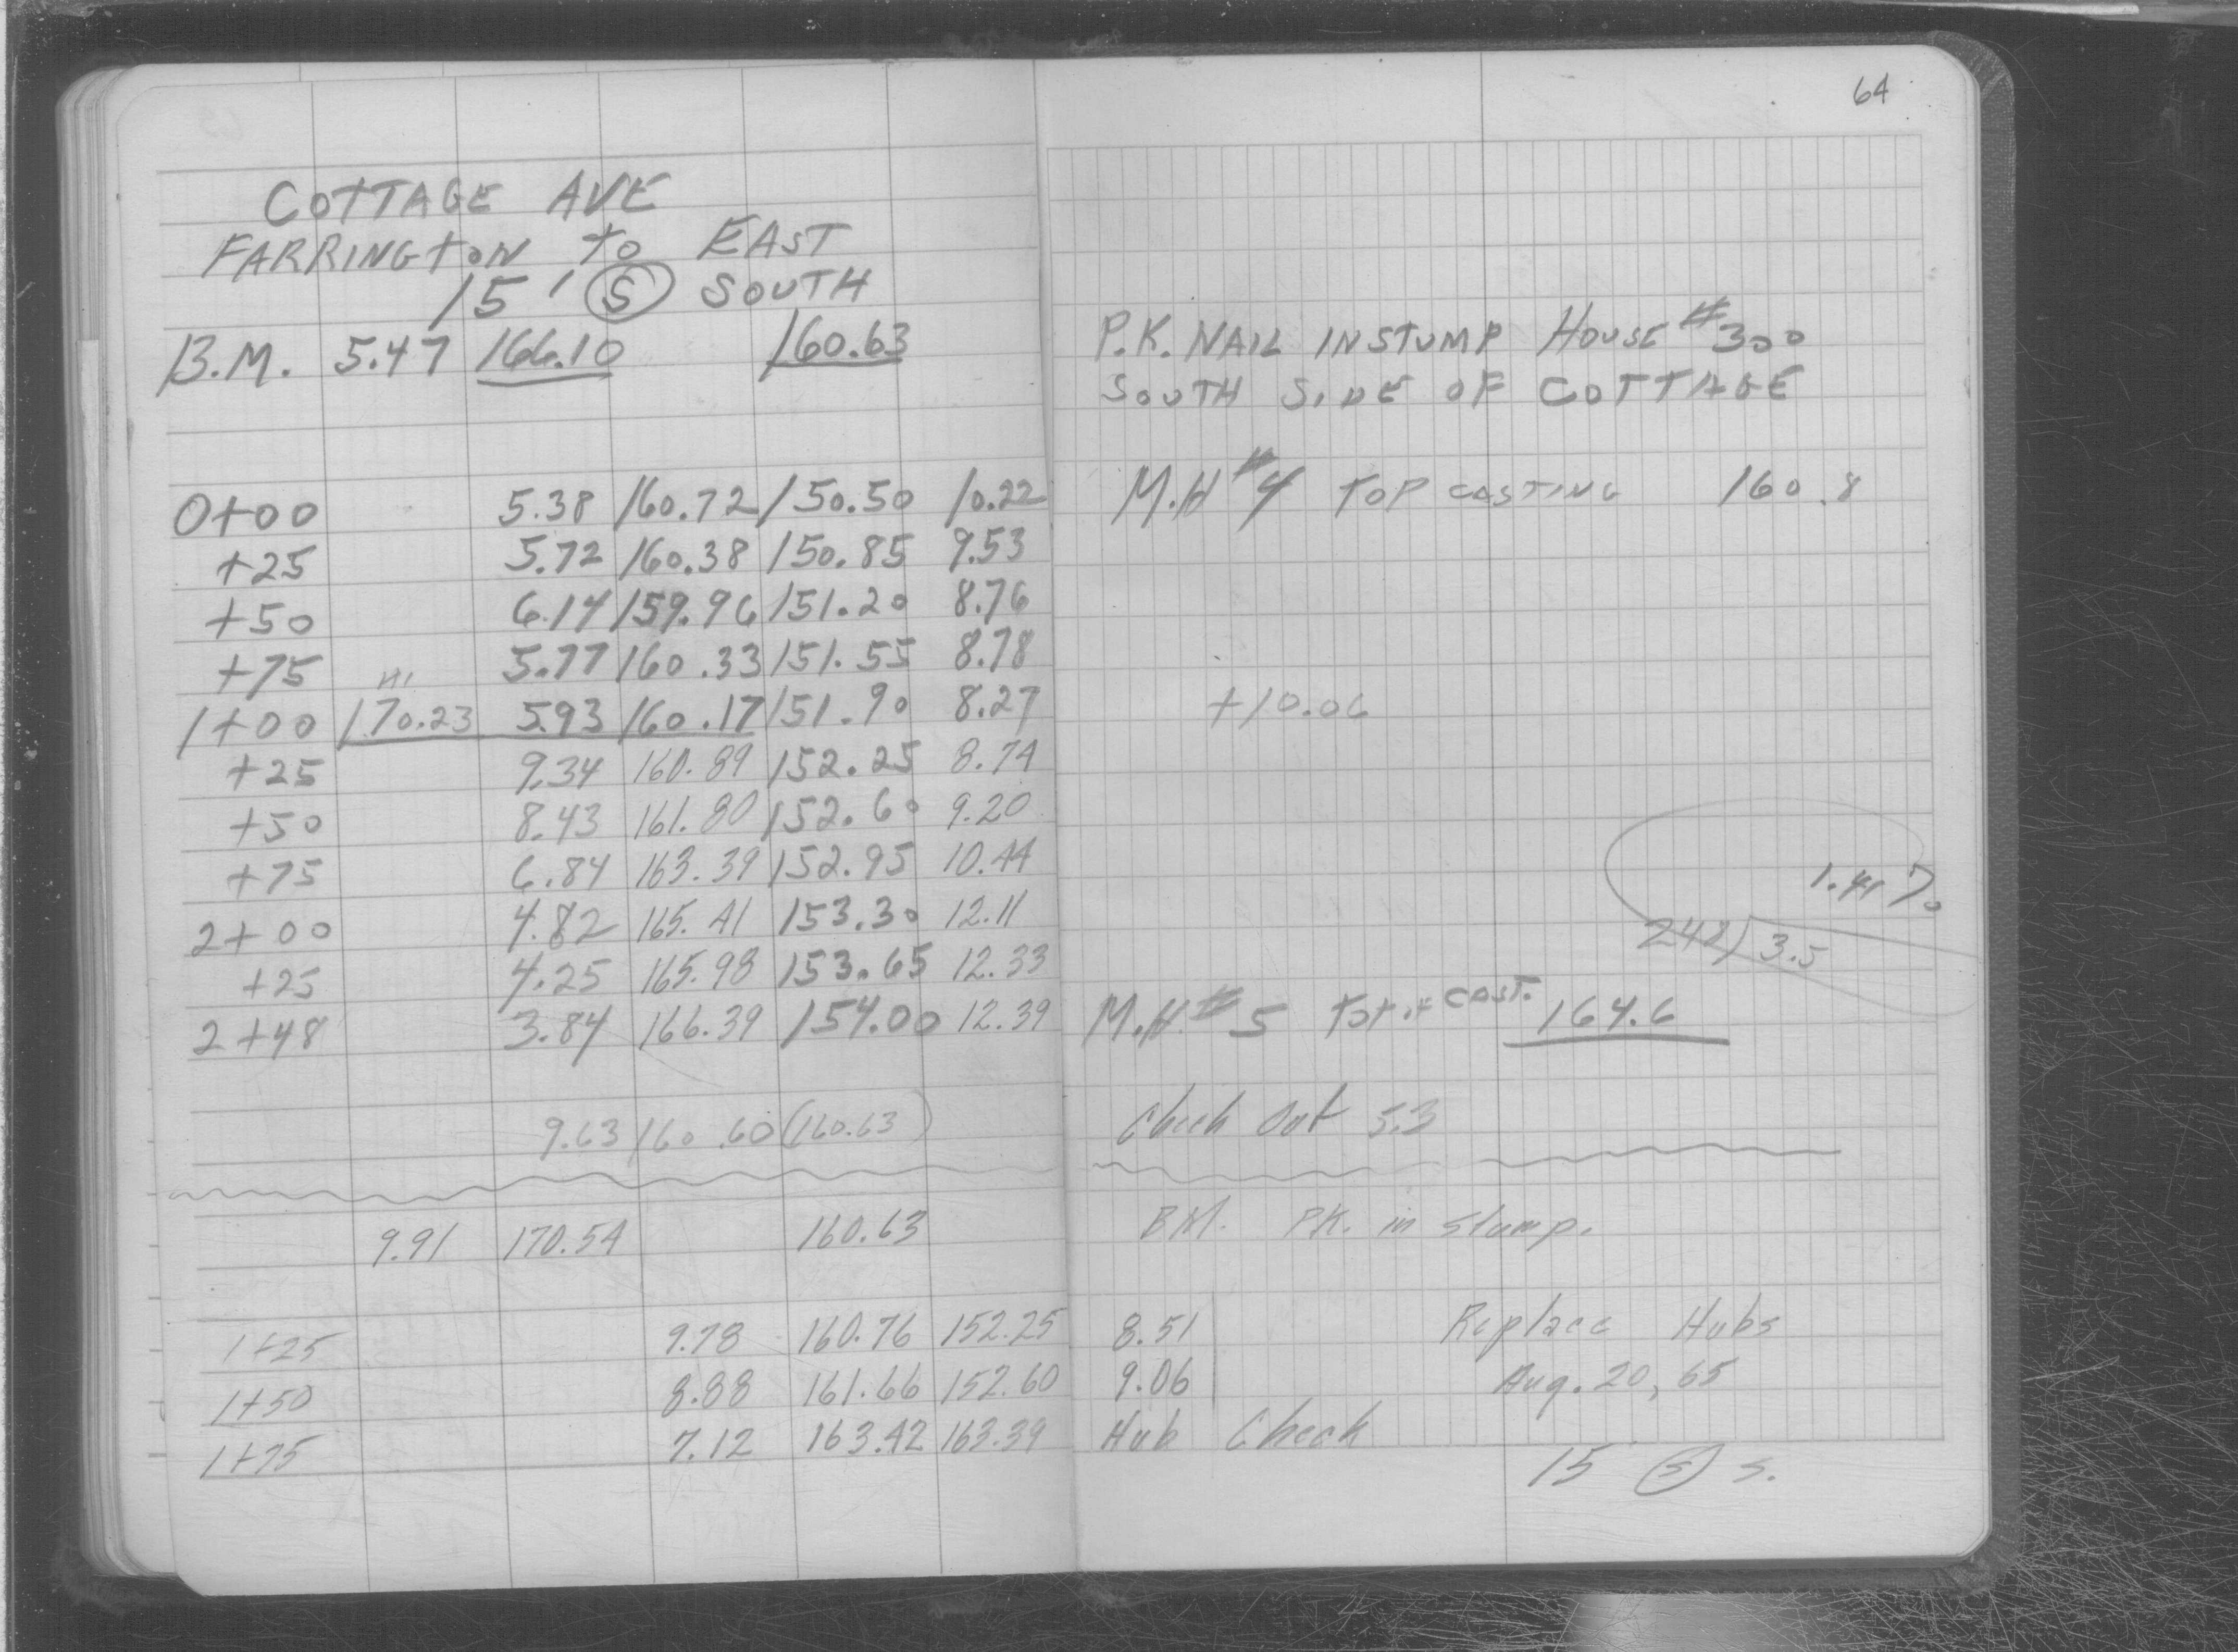 64
COTTAGE AVE
FARRINGTON TO EAST
15' (S) SOUTH
B.M. 5.47 166.10 160.63
P.K. NAIL IN STUMP HOUSE #300
SOUTH SIDE OF COTTAGE
0+00 5.38 160.72 150.50 10.22 M.H #4 TOP CASTING 160.8
+25 5.72 160.38 150.85 9.53
+50 6.14 159.96 151.20 8.76
+75 5.77 160.33 151.55 8.78
HI
1+00 170.23 5.93 160.17 151.90 8.27 +10.06
+25 9.34 160.89 152.25 8.74
+50 8.43 161.80 152.60 9.20
+75 6.84 163.39 152.95 10.44
1.41%
2+00 4.82 165.41 153.30 12.11
248)3.5
+25 4.25 165.98 153.65 12.33
2+48 3.84 166.39 154.00 12.39 M.H #5 CAST. 164.6
9.63 160.60 (160.63) Check Out 5.3
9.91 170.54 160.63 BM. PK. in stump.
1+25 9.78 160.76 152.25 8.51 Replace Hubs
1+50 8.88 161.66 152.60 9.06 Aug. 20, 65
1+75 7.12 163.42 163.39 Hub Check
15 (S) S.